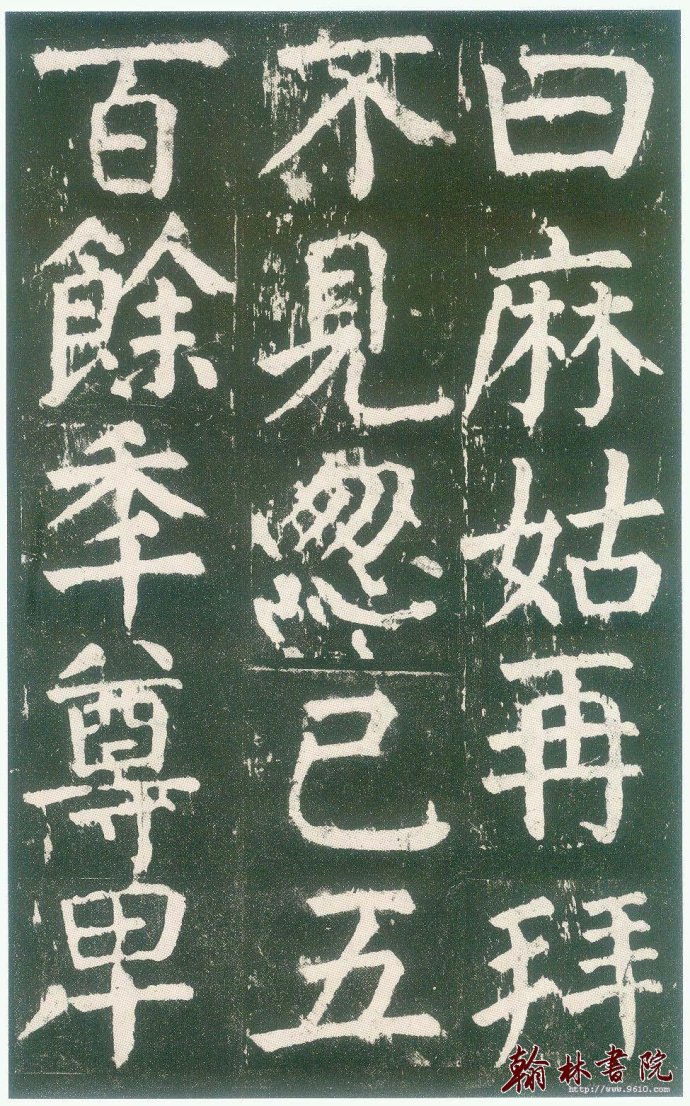 曰麻姑再拜
不見忽已五
百餘年尊卑
翰林書院
http://www.9610.com